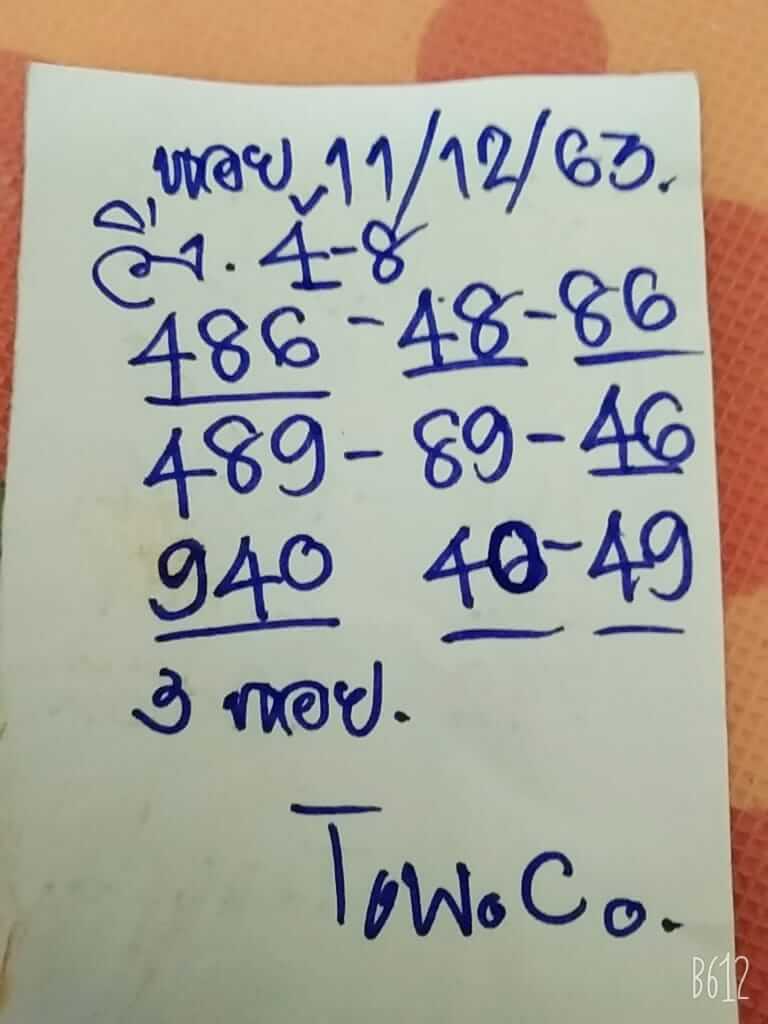 หอย 11/12/63.
วิ่ง. 4-8
486-48-86
489-89-46
940 40-49
3 หอย.
B612